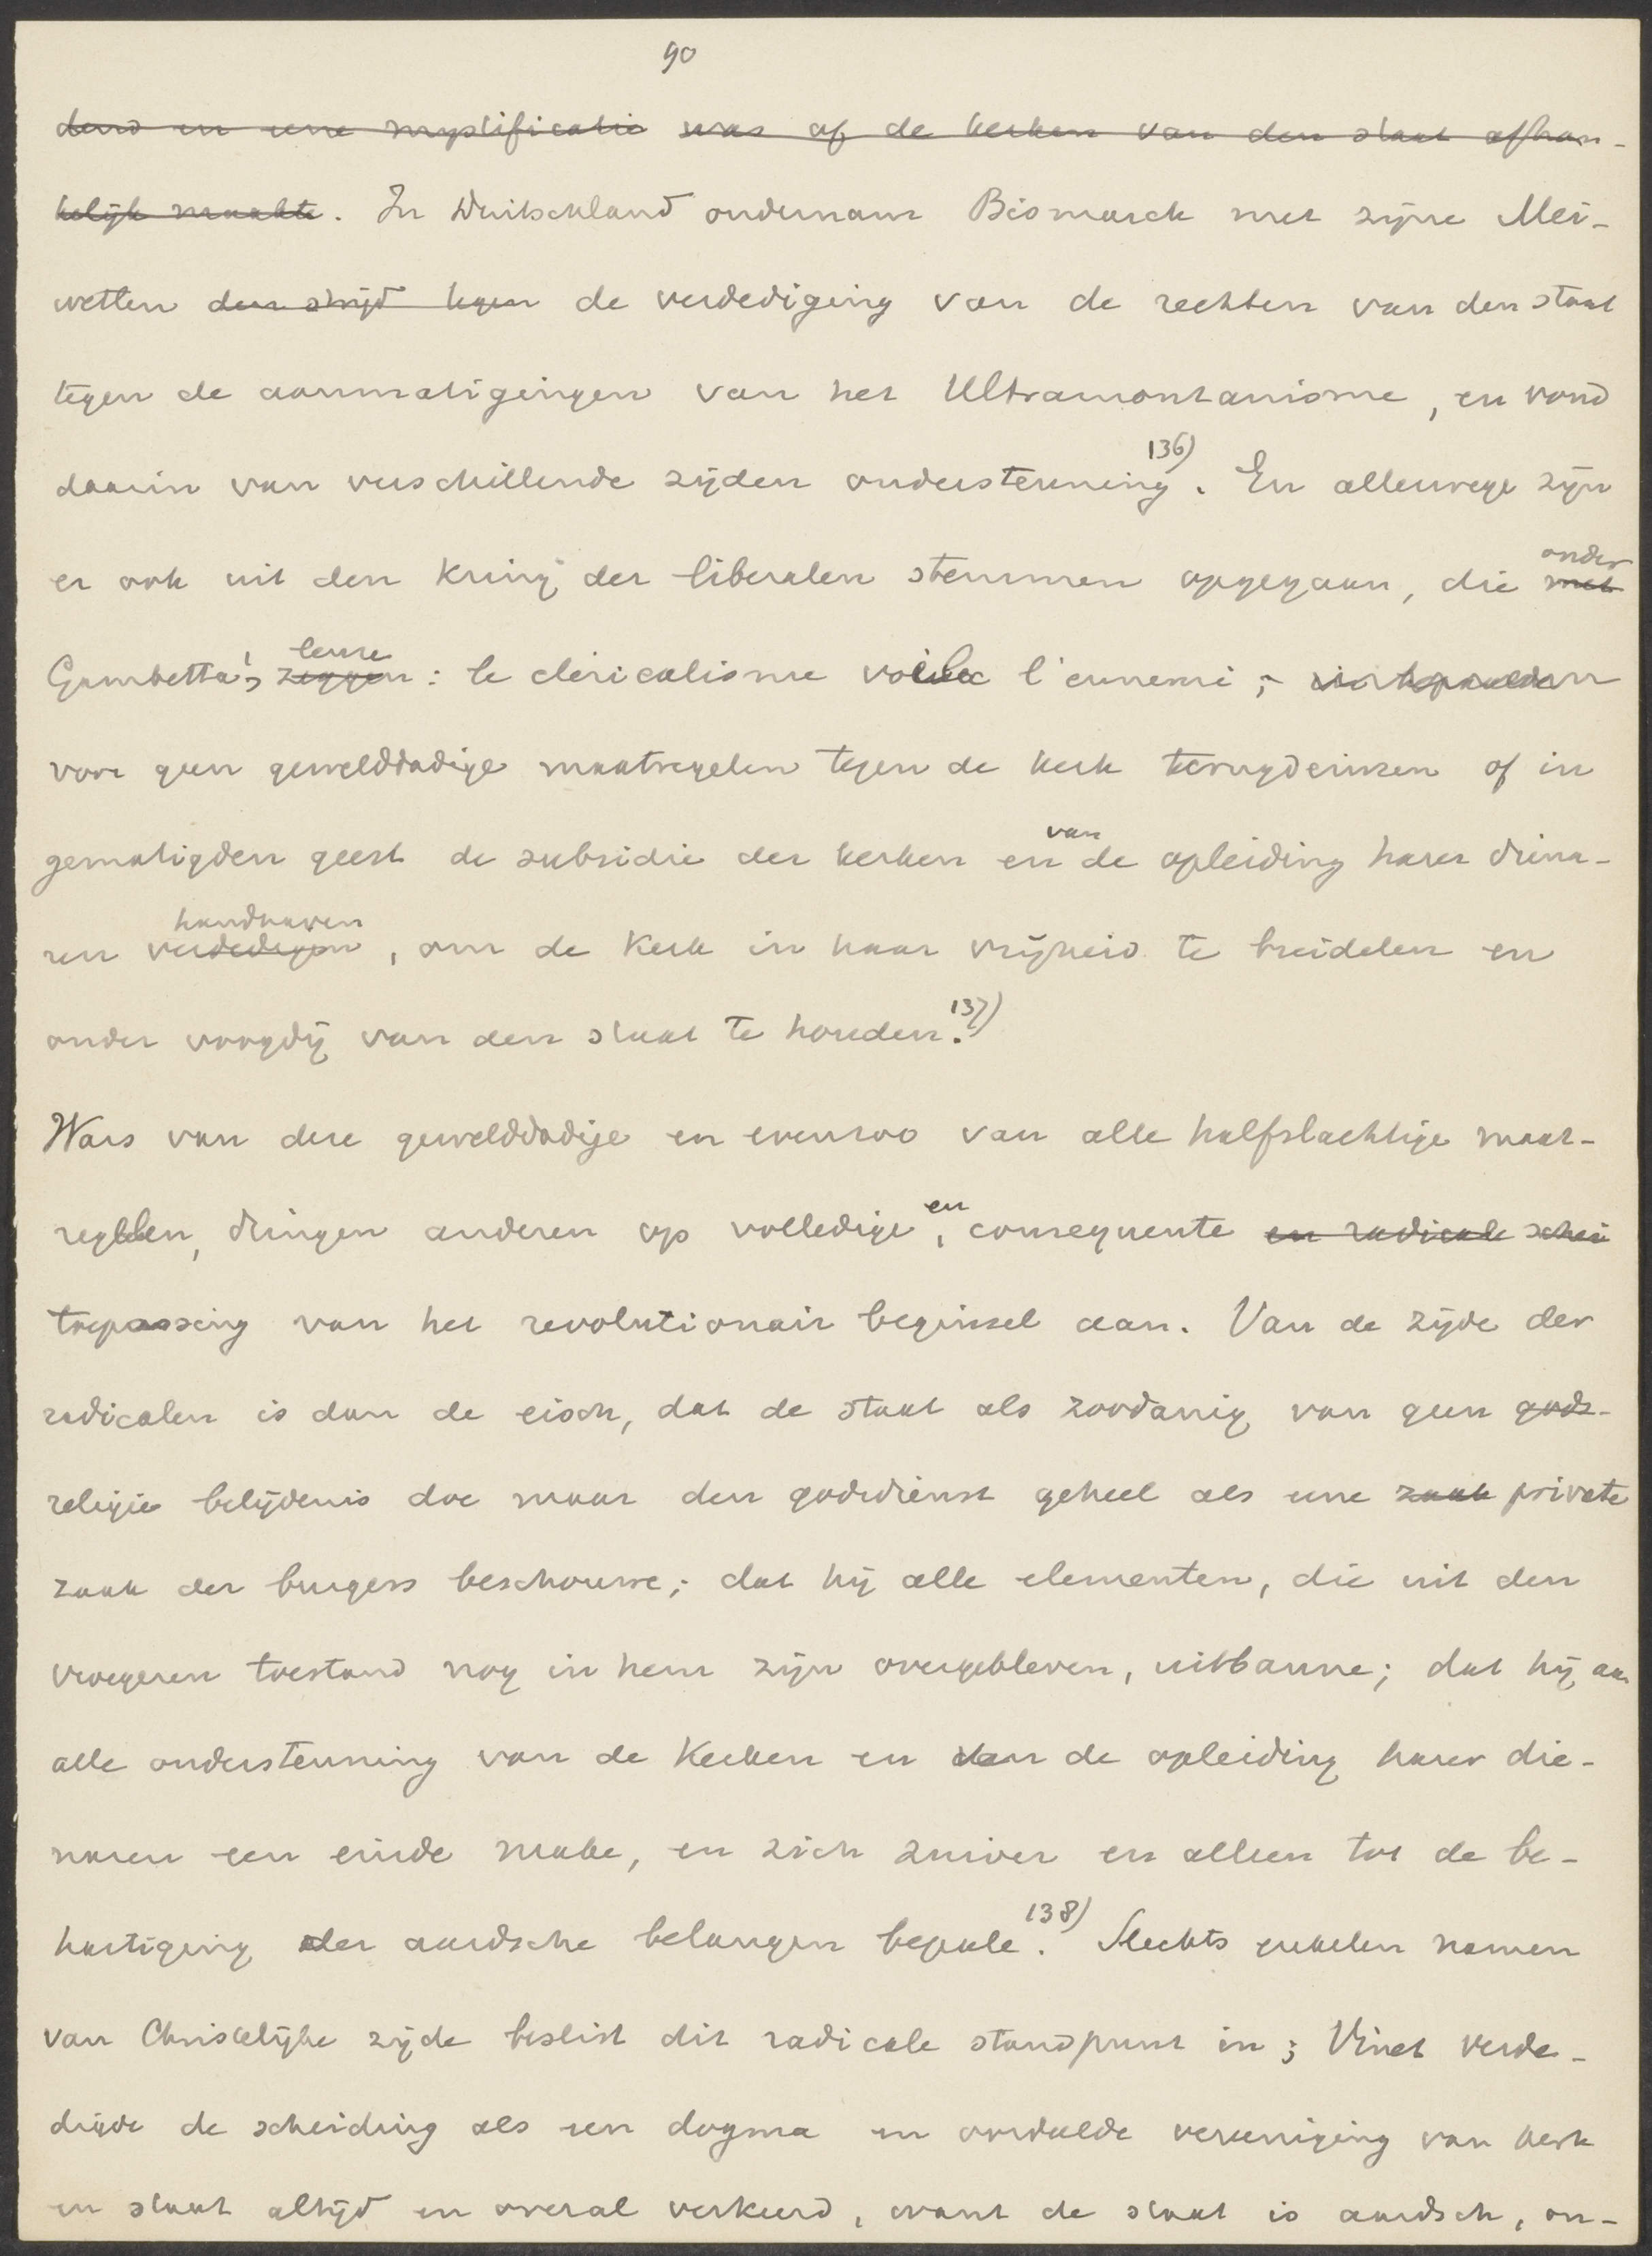 90
dend en eene mystificatie was of de kerken van den staat afhan-
kelijk maakte. In Duitschland ondernam Bismarck met zijne Mei-
wetten den strijd tegen de verdediging van de rechten van den staat
tegen de aanmatigingen van het Ultramontanisme, en vond
daarin van verschillende zijden ondersteuning 136). En allerwege zijn
er ook uit den kring der liberalen stemmen opgegaan, die met onder
Gambetta's zeggen leuze: le clericalisme voila l'ennemi;
voor geen gewelddadige maatregelen tegen de kerk terugdeinzen of in
gematigden geest de subsidie der kerken en van de opleiding harer diena-
ren verdedigen handhaven, om de kerk in haar vrijheid te breidelen en
onder voogdij van den staat te houden. 137)
Wars van deze gewelddadige en evenzoo van alle halfslachtige maat-
regelen, dringen anderen op volledige, en consequente en radicale schei
toepassing van het revolutionair beginsel aan. Van de zijde der
radicalen is dan de eisch, dat de staat als zoodanig van geen gods-
religie belijdenis doe maar den godsdienst geheel als eene zaak private
zaak der burgers beschouwe; dat hij alle elementen, die uit den
vroegeren toestand nog in hem zijn overgebleven, uitbanne; dat hij aan
alle ondersteuning van de kerken en van de opleiding harer die-
naren een einde make, en zich zuiver en alleen tot de be-
hartiging der aardsche belangen bepale. 138) Slechts enkelen namen
van Christelijke zijde beslist dit radicale standpunt in; Vinet verde-
digde de scheiding als een dogma en oordeelde vereeniging van kerk
en staat altijd en overal verkeerd, want de staat is aardsch, on-